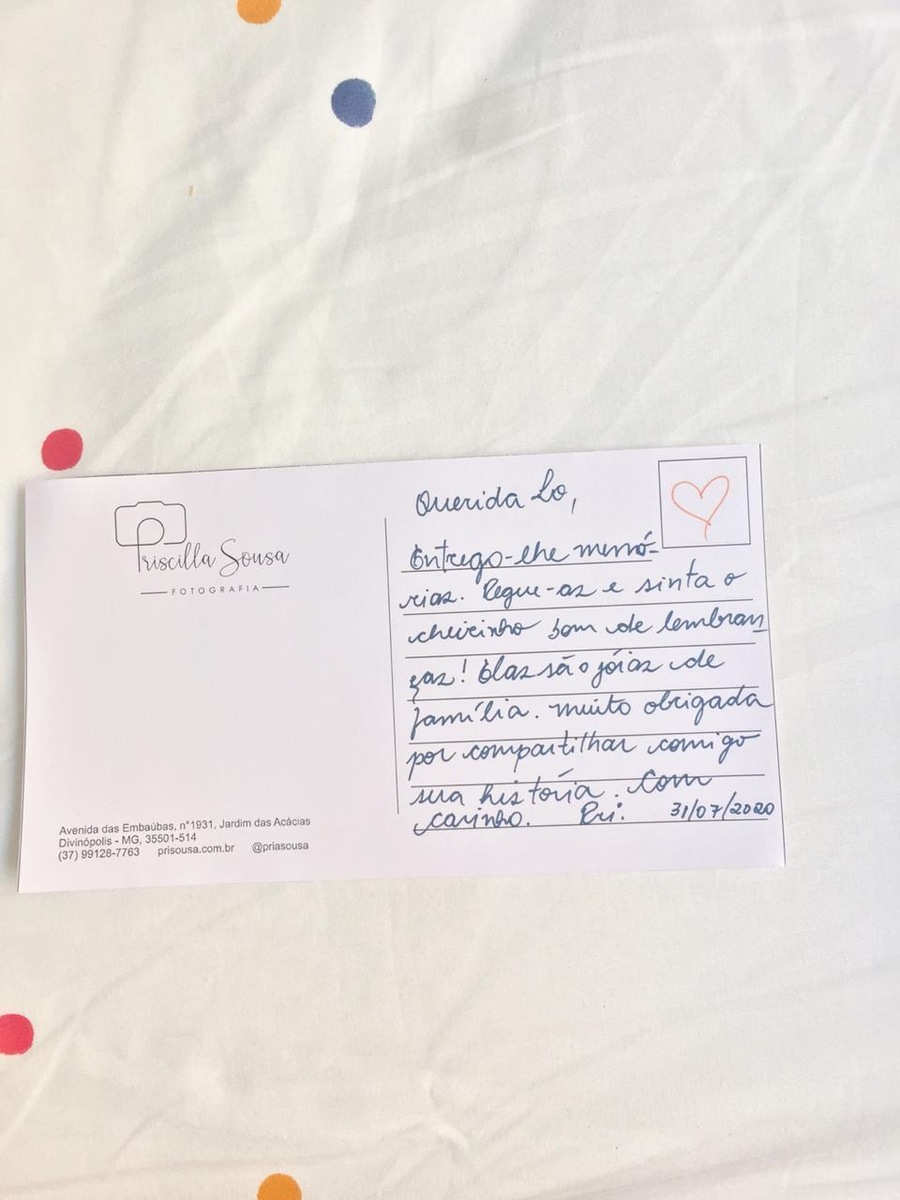 Priscilla Sousa
FOTOGRAFIA
Avenida das Embaúbas, n°1931, Jardim das Acácias
Divinópolis - MG, 35501-514
(37) 99128-7763 prisousa.com.br @priasousa
Querida Lo,
Entrego-lhe memó-
rias. Pegue-as e sinta o
cheirinho bom de lembran
ças! Elas são jóias de
família. Muito obrigada
por compartilhar comigo
sua história. Com
carinho. Pri. 31/07/2020